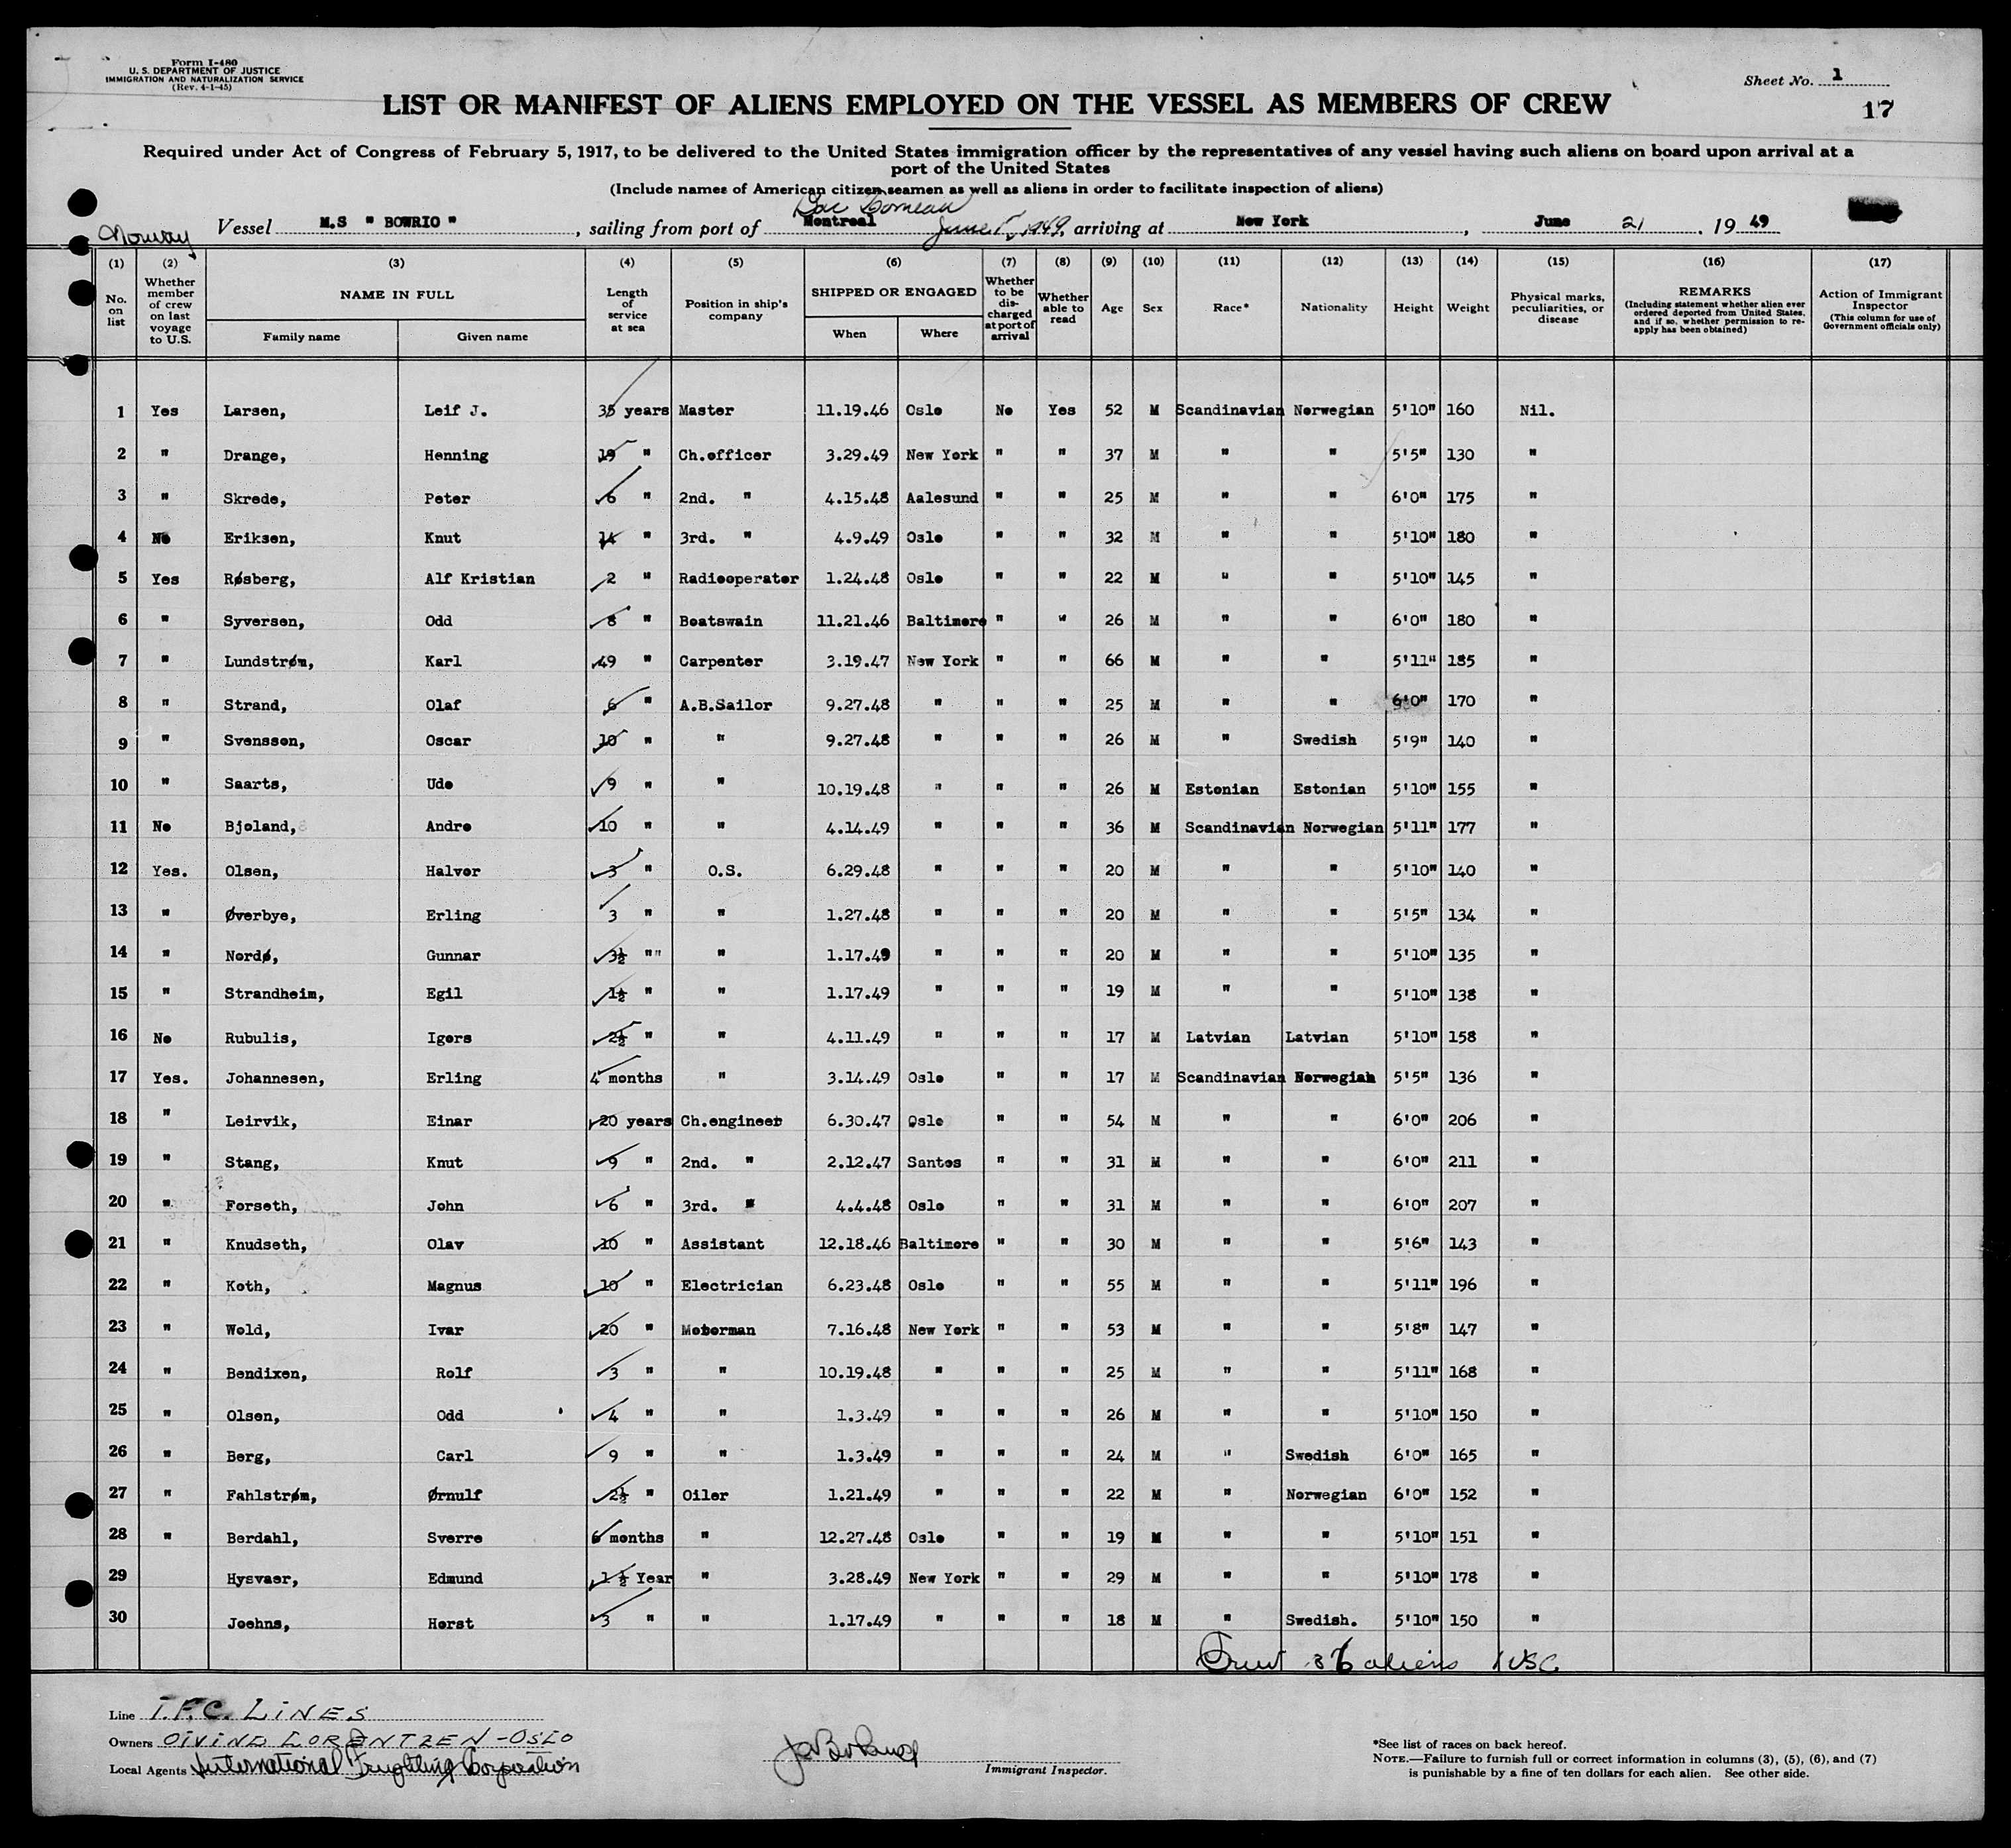 Form I-480
U. S. DEPARTMENT OF JUSTICE
IMMIGRATION AND NATURALIZATION SERVICE
(Rev. 4-1-45)
Sheet No. 1
17
LIST OR MANIFEST OF ALIENS EMPLOYED ON THE VESSEL AS MEMBERS OF CREW
Required under Act of Congress of February 5, 1917, to be delivered to the United States immigration officer by the representatives of any vessel having such aliens on board upon arrival at a
port of the United States
(Include names of American citizen seamen as well as aliens in order to facilitate inspection of aliens)
Norway Vessel M.S " BOWRIO " , sailing from port of Montreal June 1, 1949, arriving at New York , June 21 , 19 49
(1) (2) (3) (4) (5) (6) (7) (8) (9) (10) (11) (12) (13) (14) (15) (16) (17)
No. on list
Whether member of crew on last voyage to U.S.
NAME IN FULL
Family name
Given name
Length of service at sea
Position in ship's company
SHIPPED OR ENGAGED
When
Where
Whether to be discharged at port of arrival
Whether able to read
Age
Sex
Race*
Nationality
Height
Weight
Physical marks, peculiarities, or disease
REMARKS
(Including statement whether alien ever ordered deported from United States, and if so, whether permission to re-apply has been obtained)
Action of Immigrant Inspector
(This column for use of Government officials only)
1 Yes Larsen, Leif J. 35 years Master 11.19.46 Oslo No Yes 52 M Scandinavian Norwegian 5'10" 160 Nil.
2 " Drange, Henning 19 " Ch.officer 3.29.49 New York " " 37 M " " 5'5" 130 "
3 " Skrede, Peter 6 " 2nd. " 4.15.48 Aalesund " " 25 M " " 6'0" 175 "
4 No Eriksen, Knut 14 " 3rd. " 4.9.49 Oslo " " 32 M " " 5'10" 180 "
5 Yes Røsberg, Alf Kristian 2 " Radiooperator 1.24.48 Oslo " " 22 M " " 5'10" 145 "
6 " Syversen, Odd 8 " Boatswain 11.21.46 Baltimore " " 26 M " " 6'0" 180 "
7 " Lundstrøm, Karl 49 " Carpenter 3.19.47 New York " " 66 M " " 5'11" 185 "
8 " Strand, Olaf 6 " A.B.Sailor 9.27.48 " " " 25 M " " 6'0" 170 "
9 " Svensson, Oscar 10 " " 9.27.48 " " " 26 M " Swedish 5'9" 140 "
10 " Saarts, Udo 9 " " 10.19.48 " " " 26 M Estonian Estonian 5'10" 155 "
11 No Bjoland, Andre 10 " " 4.14.49 " " " 36 M Scandinavian Norwegian 5'11" 177 "
12 Yes. Olsen, Halvor 3 " O.S. 6.29.48 " " " 20 M " " 5'10" 140 "
13 " Øverbye, Erling 3 " " 1.27.48 " " " 20 M " " 5'5" 134 "
14 " Nordø, Gunnar 3½ "" " 1.17.49 " " " 20 M " " 5'10" 135 "
15 " Strandheim, Egil 1½ " " 1.17.49 " " " 19 M " " 5'10" 138 "
16 No Rubulis, Igors 2½ " " 4.11.49 " " " 17 M Latvian Latvian 5'10" 158 "
17 Yes. Johannesen, Erling 4 months " 3.14.49 Oslo " " 17 M Scandinavian Norwegian 5'5" 136 "
18 " Leirvik, Einar 20 years Ch.engineer 6.30.47 Oslo " " 54 M " " 6'0" 206 "
19 " Stang, Knut 9 " 2nd. " 2.12.47 Santos " " 31 M " " 6'0" 211 "
20 " Forseth, John 6 " 3rd. " 4.4.48 Oslo " " 31 M " " 6'0" 207 "
21 " Knudseth, Olav 10 " Assistant 12.18.46 Baltimore " " 30 M " " 5'6" 143 "
22 " Koth, Magnus 10 " Electrician 6.23.48 Oslo " " 55 M " " 5'11" 196 "
23 " Wold, Ivar 20 " Motorman 7.16.48 New York " " 53 M " " 5'8" 147 "
24 " Bendixen, Rolf 3 " " 10.19.48 " " " 25 M " " 5'11" 168 "
25 " Olsen, Odd 4 " " 1.3.49 " " " 26 M " " 5'10" 150 "
26 " Berg, Carl 9 " " 1.3.49 " " " 24 M " Swedish 6'0" 165 "
27 " Fahlstrøm, Ørnulf 2½ " Oiler 1.21.49 " " " 22 M " Norwegian 6'0" 152 "
28 " Berdahl, Sverre 6 months " 12.27.48 Oslo " " 19 M " " 5'10" 151 "
29 Hysvaer, Edmund 1 ½ Year " 3.28.49 New York " " 29 M " " 5'10" 178 "
30 Joehns, Horst 3 " " 1.17.49 " " " 18 M " Swedish. 5'10" 150 "
36 aliens 1 USC
Line I.F.C. LINES
Owners OIVIND LORENTZEN - OSLO
Local Agents International Freighting Corporation
Immigrant Inspector.
*See list of races on back hereof.
NOTE.—Failure to furnish full or correct information in columns (3), (5), (6), and (7)
is punishable by a fine of ten dollars for each alien. See other side.